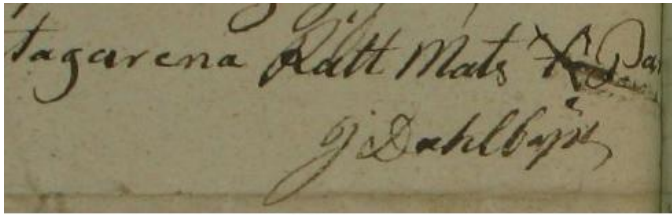 tagarena Rätt Mats
J Dahlbyn